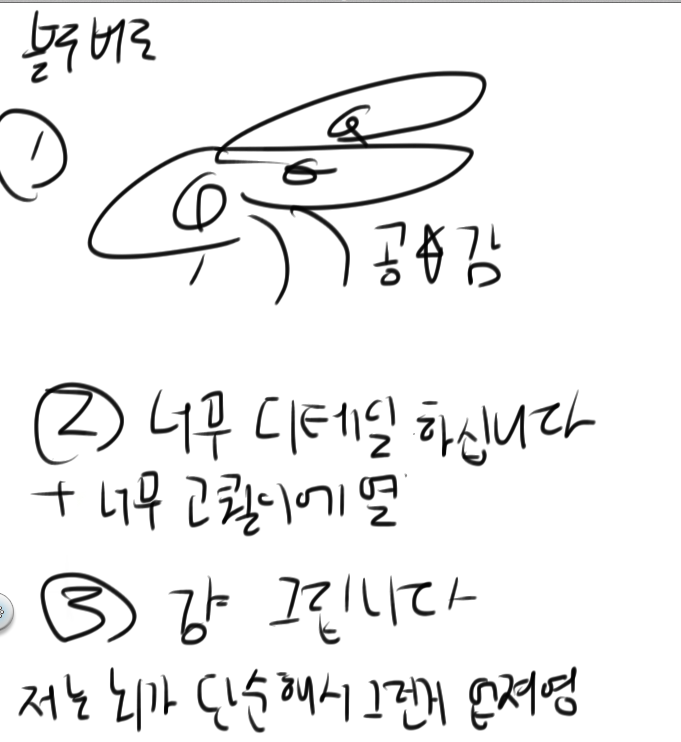 블루버로
①
공ㅂ감
② 너무 디테일 하십니다
+ 너무 고퀄이에열
③ 걍 그립니다
저는 뇌가 단순해서 그런게 업져영